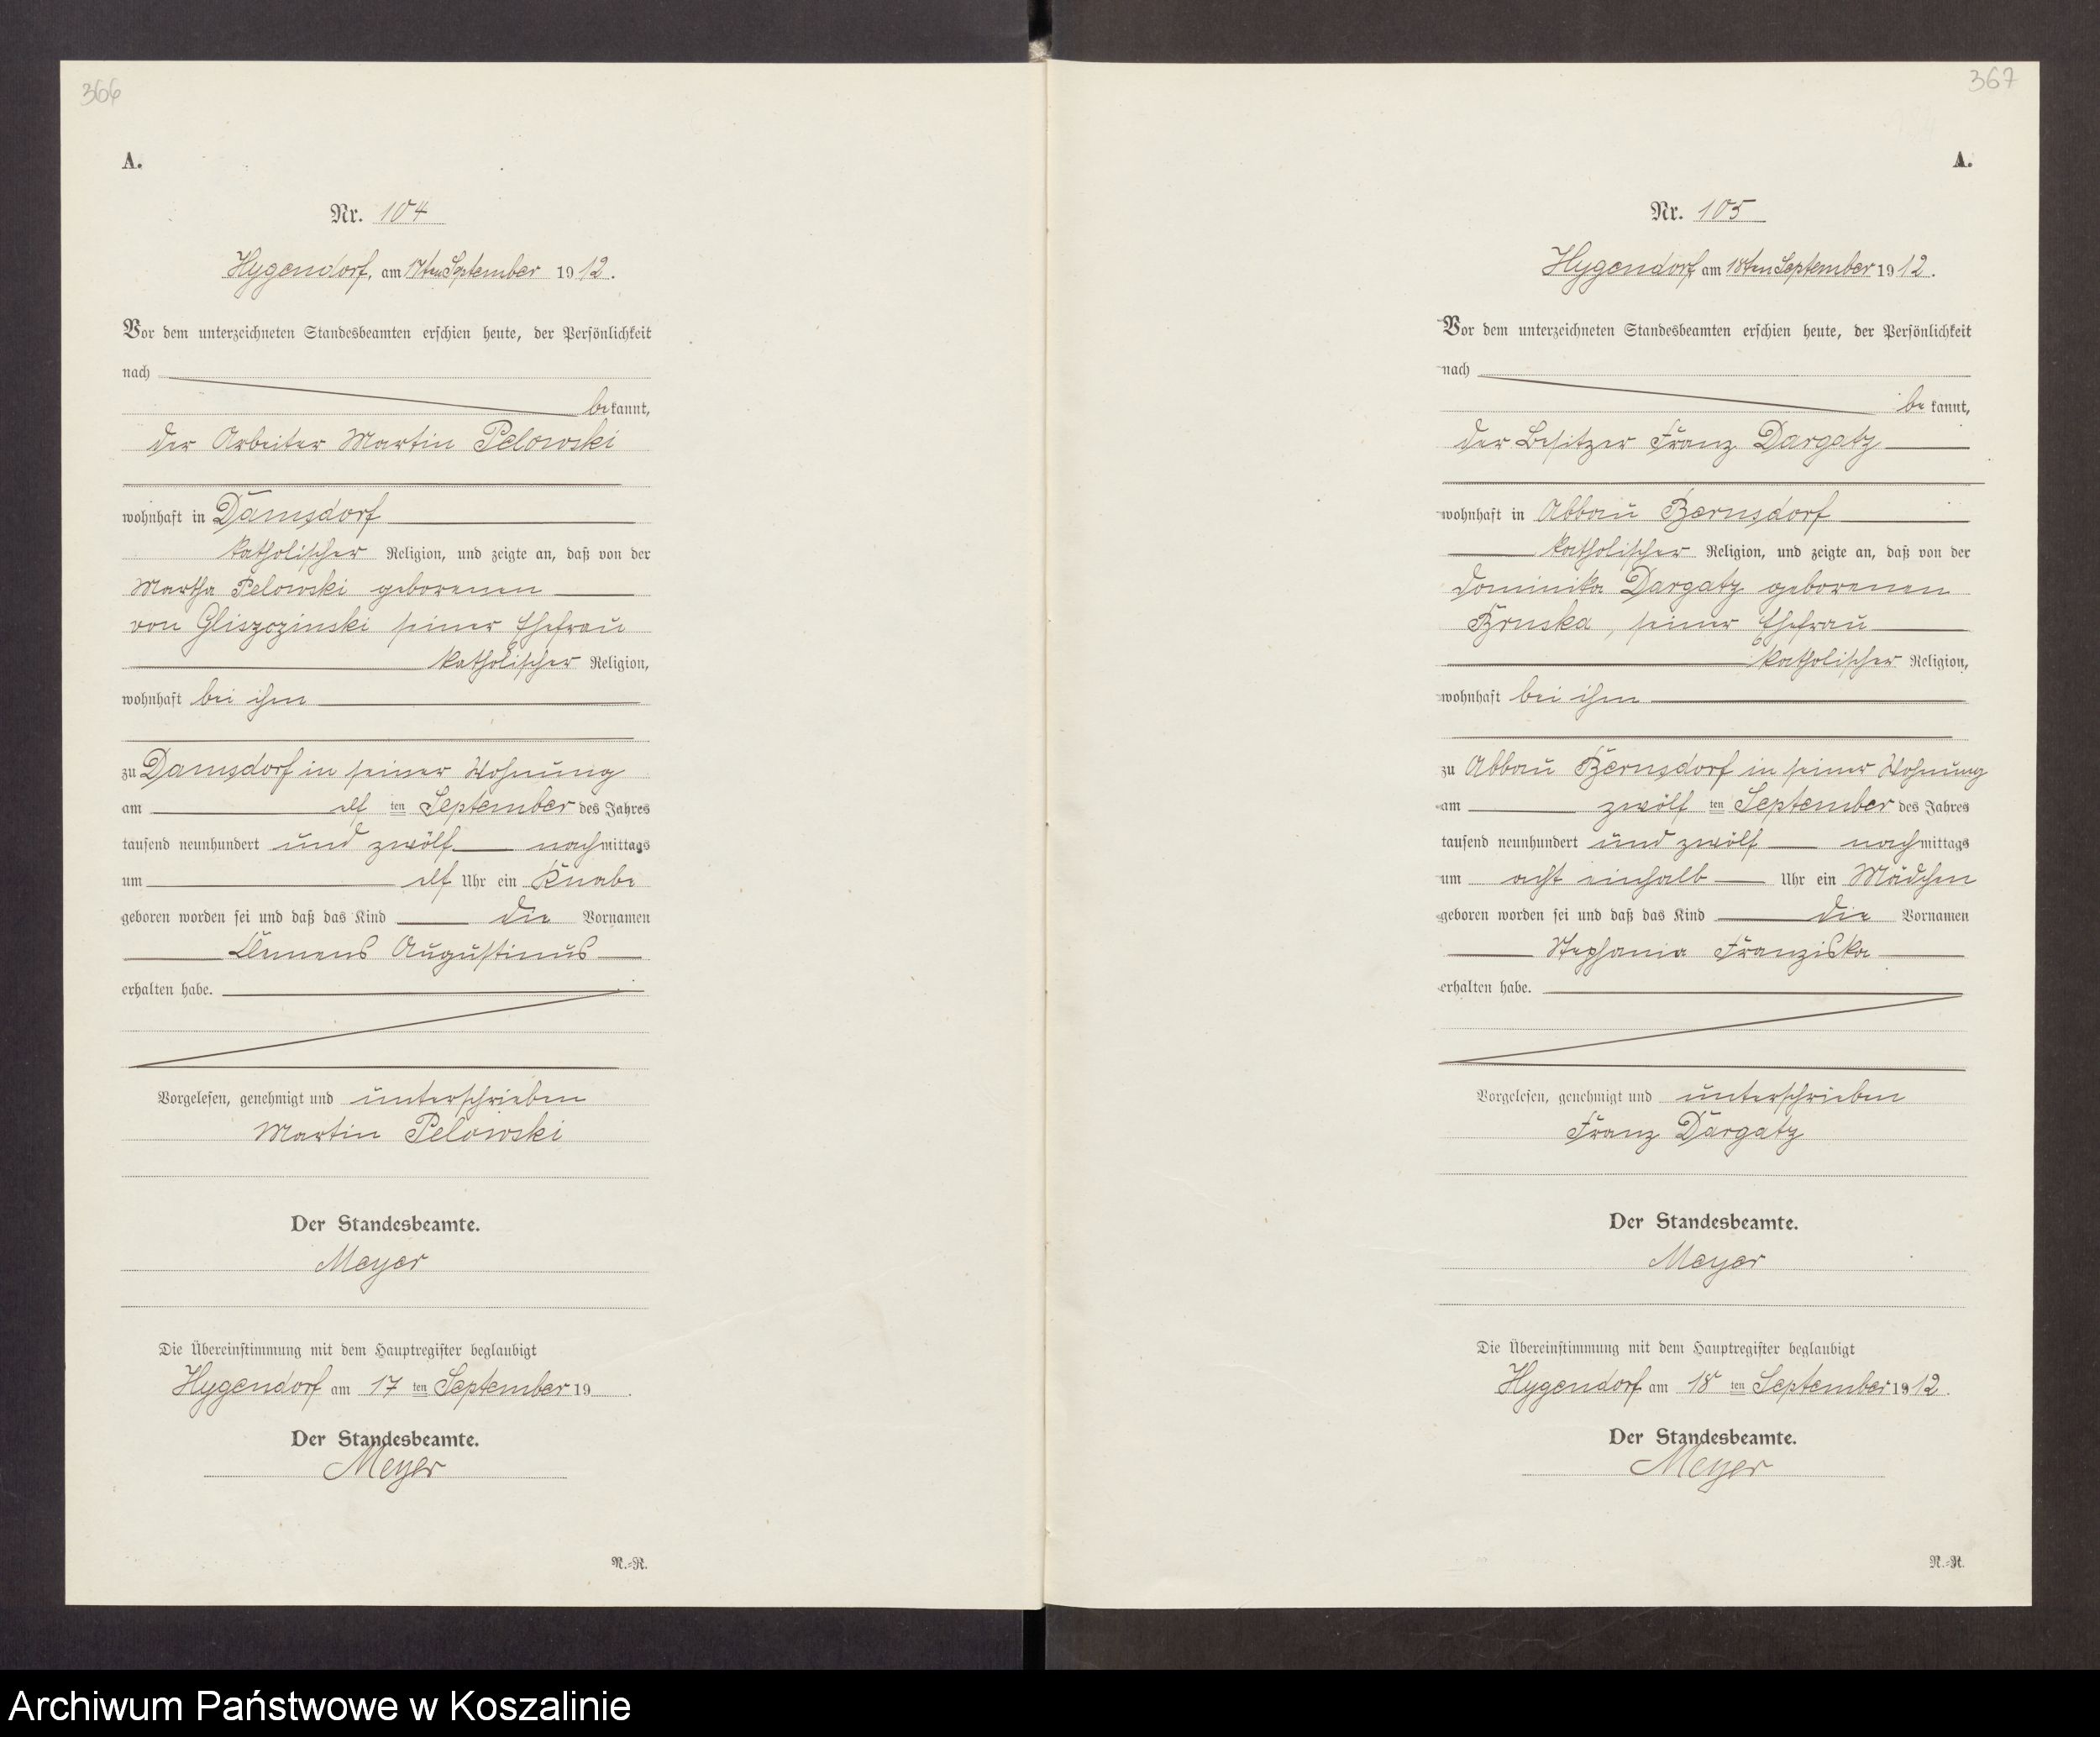 366
A.
Nr. 104
Hygendorf, am 17ten September 1912.
Vor dem unterzeichneten Standesbeamten erschien heute, der Persönlichkeit
nach
bekannt,
der Arbeiter Martin Pelowski
wohnhaft in Damsdorf
katholischer Religion, und zeigte an, daß von der
Martha Pelowski geborenen
von Gliszczinski seiner Ehefrau
katholischer Religion,
wohnhaft bei ihm
zu Damsdorf in seiner Wohnung
am elf ten September des Jahres
tausend neunhundert und zwölf nachmittags
um elf Uhr ein Knabe
geboren worden sei und daß das Kind die Vornamen
Clemens Augustinus
erhalten habe.
Vorgelesen, genehmigt und unterschrieben
Martin Pelowski
Der Standesbeamte.
Meyer
Die Übereinstimmung mit dem Hauptregister beglaubigt
Hygendorf am 17 ten September 19 .
Der Standesbeamte.
Meyer
N.-R.
367
A.
Nr. 105
Hygendorf am 18ten September 1912.
Vor dem unterzeichneten Standesbeamten erschien heute, der Persönlichkeit
nach
bekannt,
der Besitzer Franz Dargatz
wohnhaft in Abbau Bernsdorf
katholischer Religion, und zeigte an, daß von der
Dominika Dargatz geborenen
Bruska, seiner Ehefrau
katholischer Religion,
wohnhaft bei ihm
zu Abbau Bernsdorf in seiner Wohnung
am zwölf ten September des Jahres
tausend neunhundert und zwölf nachmittags
um acht einhalb Uhr ein Mädchen
geboren worden sei und daß das Kind die Vornamen
Stephania Franziska
erhalten habe.
Vorgelesen, genehmigt und unterschrieben
Franz Dargatz
Der Standesbeamte.
Meyer
Die Übereinstimmung mit dem Hauptregister beglaubigt
Hygendorf am 18 ten September 1912.
Der Standesbeamte.
Meyer
N.-R.
Archiwum Państwowe w Koszalinie